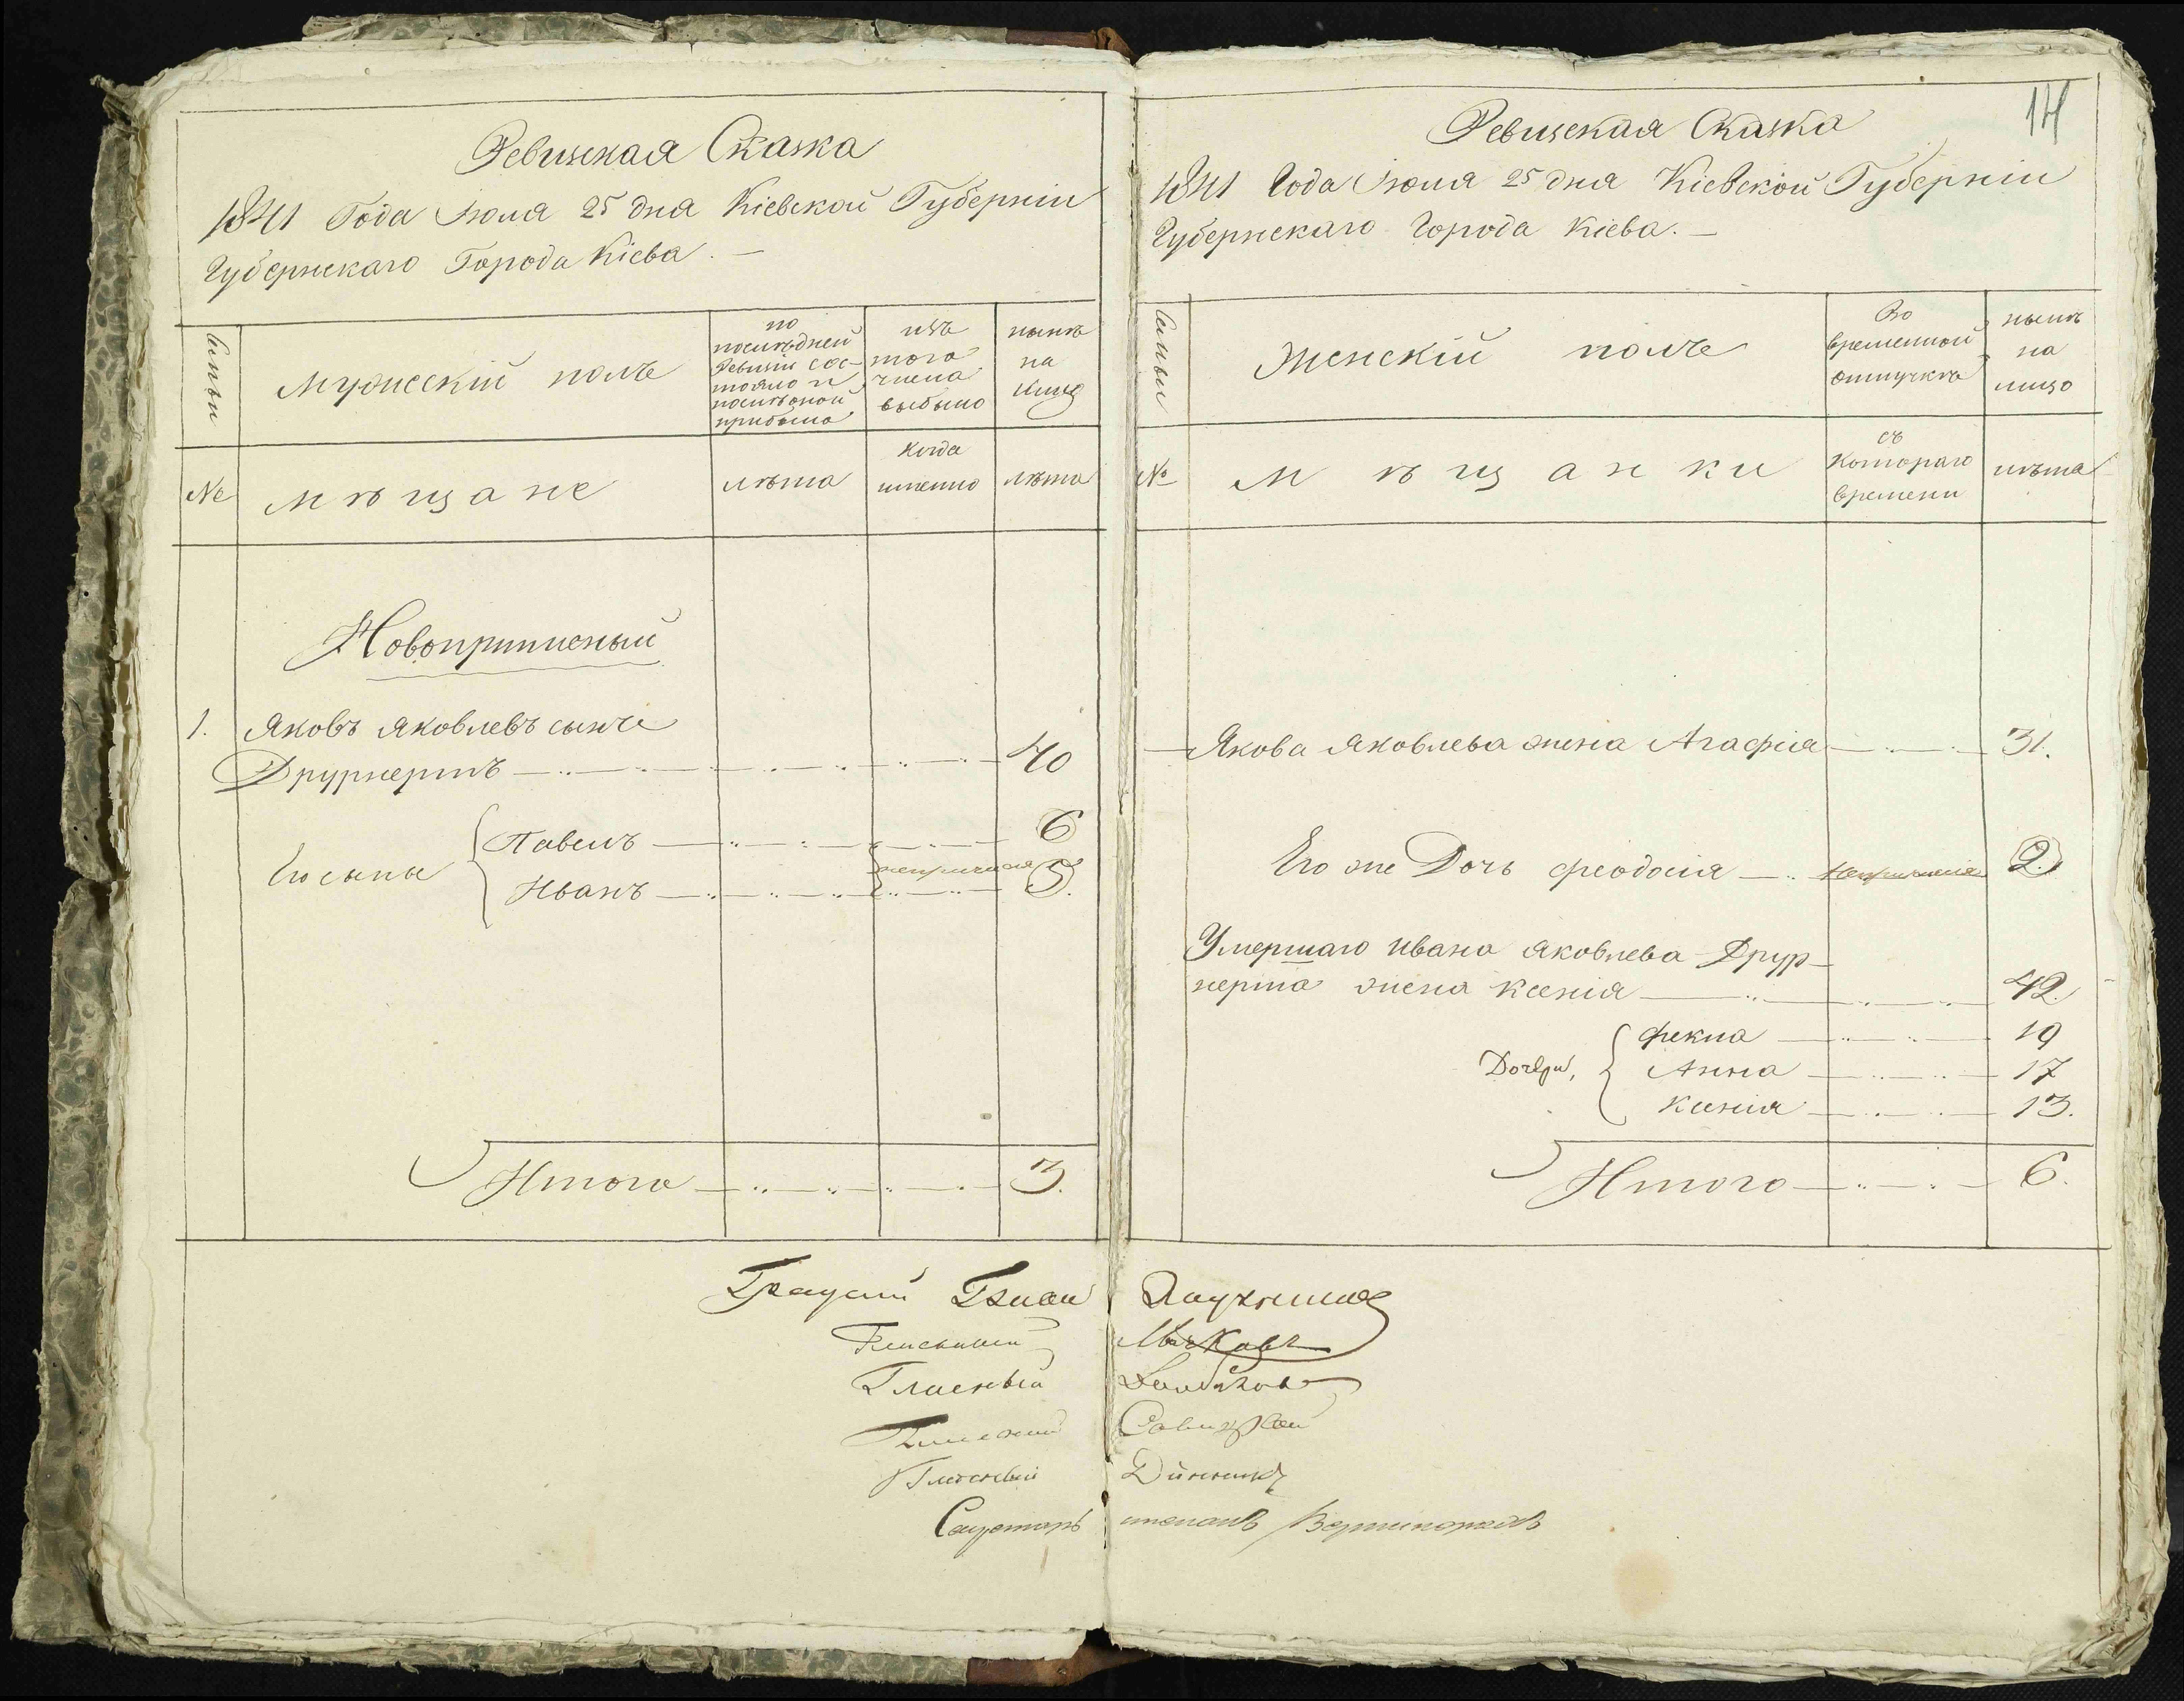 Ревизская Сказка
1841 Года Іюля 25 дня Кіевской Губерніи
Губернскаго Города Кіева. —
Семьи
Мужескій полъ
по
последней
Ревизіи сос-
тояло и
после оной
прибыло
изъ
того
числа
выбыло
ныне
на
лицо
№
Мѣщане
лѣта
когда
именно
лѣта
Новоприписный
1. Яковъ Яковлевъ сынъ
Друрнертъ 40
Его сыны
Павелъ 6
Иванъ 3.
Итого 3.
14
Ревизская Сказка
1841 Года Іюля 25 дня Кіевской Губерніи
Губернскаго Города Кіева. —
Семьи
Женскій полъ
Во
временной
отлучкѣ
нынѣ
на
лицо
№
Мѣщанки
съ
Котораго
времени
лѣта
Якова Яковлева жена Агафія 31.
Его же Дочь Феодосія 2.
Умершаго Ивана Яковлева Друр-
нерта жена Ксенія 42.
Дочери,
Фекла 19
Анна 17
Ксенія 13.
Итого 6.
Градской Глава
Гласный
Гласный
Гласный Савицкій
Гласный
Секретарь Степанъ